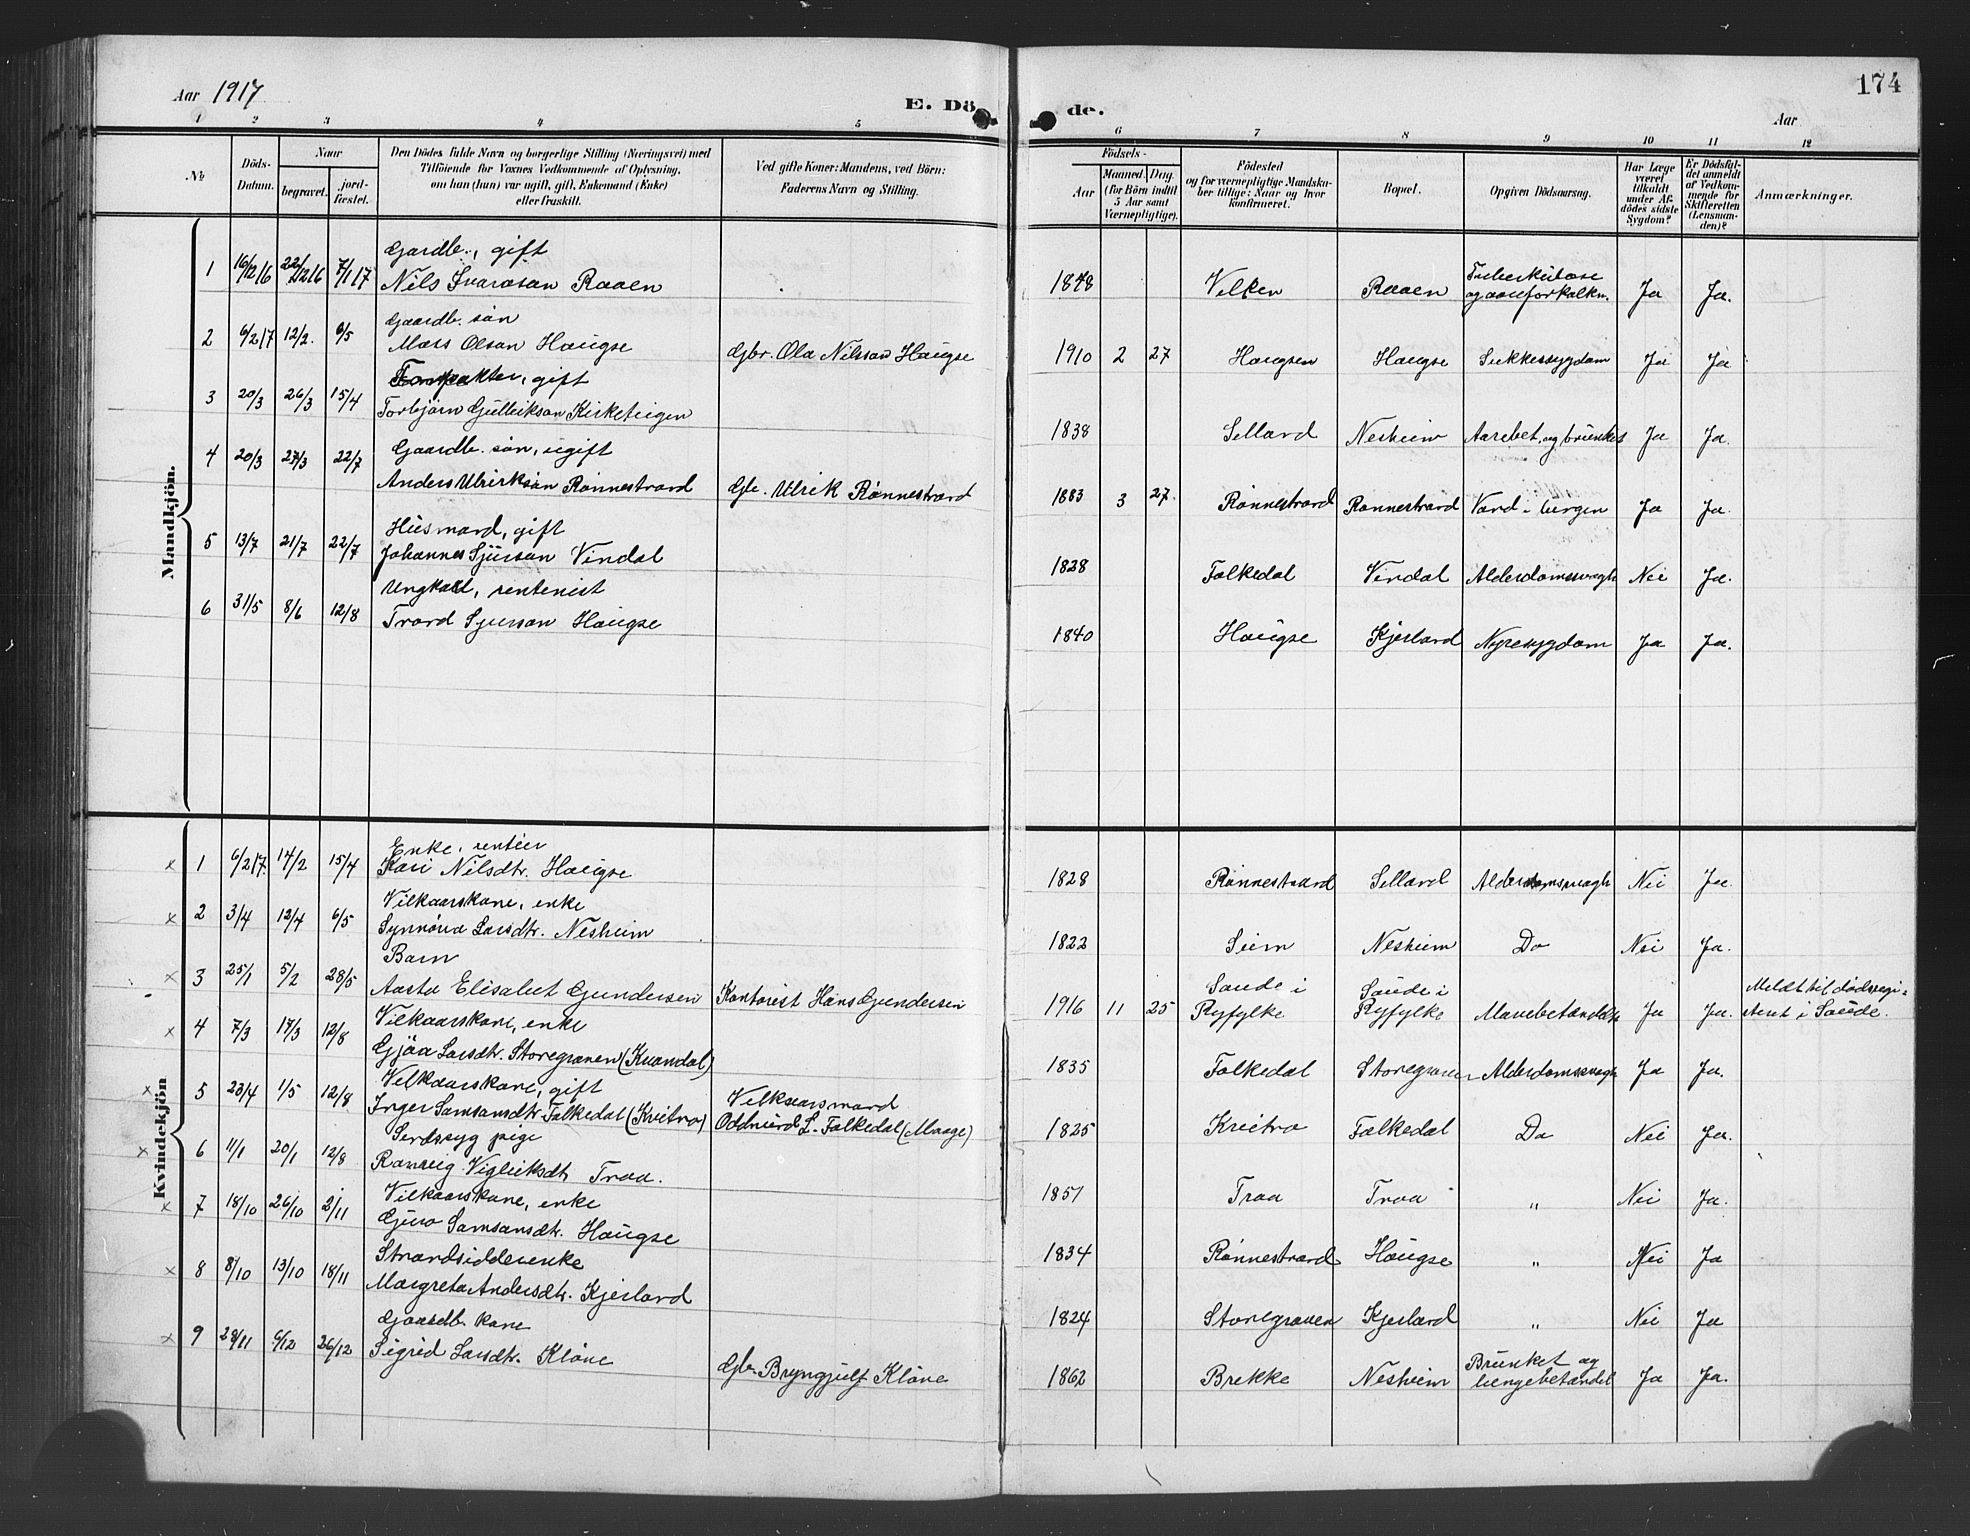 Aar 1917
E. Dö de.
174
Aar
1 2 3 4 5 6 7 8 9 10 11 12
No.
Döds-Datum.
Naar
begravet.
jord-fæstet.
Den Dödes fulde Navn og borgerlige Stilling (Næringsvei) med
Tilföiende for Voxnes Vedkommende af Oplysning,
om han (hun) var ugift, gift, Enkemand (Enke)
eller fraskilt.
Ved gifte Koner: Mandens, ved Börn:
Faderens Navn og Stilling.
Födsels-
Aar
Maaned. Dag.
(for Börn indtil
5 Aar samt
Værnepligtige).
Födested
og for værnepligtige Mandska-
ber tillige: Naar og hvor
konfirmeret.
Bopæl.
Opgiven Dödsaarsag.
Har Læge
været
tilkaldt
under Af-
dödes sidste
Sygdom?
Er Dödsfal-
det anmeldt
af Vedkom-
mende for
Skifteretten
(Lensman-
den)?
Anmærkninger.
Mandkjön.
Gardb., gift
1 16/12 16 22/12 16 7/1 17 Nils Ivarsson Raaen 1848 Velken Raaen Tuberkulose og aareforkalkn. Ja Ja.
Gaardb. søn
2 6/2 17 12/2. 6/5 Mars Olson Haugse Gbr. Ola Nilsson Haugse 1910 2 27 Haugsen Haugse Sukkersygdom Ja Ja
Forpakter, gift
3 20/3 26/3 15/4 Torbjørn Gulleikson Kirketeigen 1838 Selland Nesheim Aarebet. og brunket Ja Ja.
Gaardb. søn, ugift
4 20/3 27/3 22/7 Anders Ulrikson Rønnestrand Gb. Ulrik Rønnestrand 1883 3 27. Rønnestrand Rønnestrand Vord i lungen Ja Ja.
Husmand, gift
5 13/7 21/7 22/7 Johannes Sjurson Vindal 1828 Folkedal Vindal Alderdomssvagh Nei Ja.
Ungkarl, rentenist
6 31/5 8/6 12/8 Trond Sjurson Haugse 1840 Haugse Kjerland Nyresygdom Ja Ja.
Kvindekjön
Enke, rentier
x 1 6/2 17. 14/2 15/4 Kari Nilsdtr. Haugse 1828 Rønnestrand Selland Alderdomssvagh Nei Ja.
Vilkaarskone, enke
x 2 3/4 12/4 6/5 Synnøva Larsdtr. Nesheim 1822 Seim Nesheim Do Nei Ja.
Barn
x 3 25/1 5/2 28/5 Aasta Elisabet Gundersen Kontorist Hans Gundersen 1916 11 25 Saude i Ryfylke Saude i Ryfylke Mavebetændelse Ja Ja. Meldt til dødsregisteret i Saude.
Vilkaarskone, enke
x 4 7/3 17/3 12/8 Gjøa Larsdtr. Storegraven (Kvandal) 1835 Folkedal Storegraven Alderdomssvagh Ja Ja.
Vilkaarskone, gift
x 5 23/4 1/5 12/8 Inger Samsonsdtr. Folkedal (Kvitno) Vilkaarsmand Oddmund L. Folkedal (Maage) 1825 Kvitno Folkedal Do Nei Ja.
Serdssyg pige
x 6 11/1 20/1 12/8 Ranveig Vigleiksdtr Traa. 1851 Traa Traa " Nei Ja.
Vilkaarskone, enke
x 7 18/10 26/10 2/11 Guro Samsonsdtr. Haugse 1834 Rønnestrand Haugse " Nei Ja
Strandsidderenke
x 8 8/10 13/10 18/11 Margreta Andersdtr. Kjerland 1824 Storegraven Kjerland " Nei Ja
Gaardb. kone
x 9 28/11 6/12 26/12 Sigrid Larsdtr. Kløve Gbr. Bryngjulf Kløve 1862 Brekke Nesheim Brunket og lungebetændel Ja Ja.